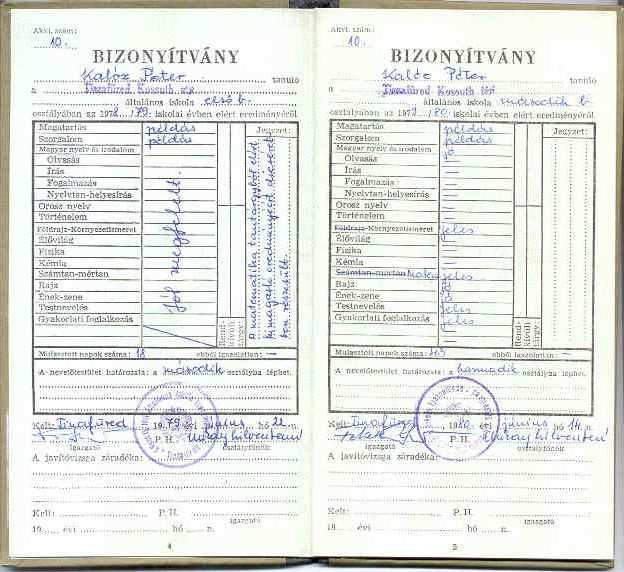 Akvi. szám:
10.
BIZONYÍTVÁNY
Kalóz Péter tanuló
a Tiszafüred Kossuth
általános iskola első b.
osztályában az 1978/79. iskolai évben elért eredményéről
Magatartás példás Jegyzet:
Szorgalom példás
Magyar nyelv és irodalom
Olvasás
Írás
Fogalmazás
Nyelvtan-helyesírás
Orosz nyelv
Történelem
Földrajz-Környezetismeret
Élővilág
Fizika
Kémia
Számtan-mértan
Rajz
Ének-zene
Testnevelés
Gyakorlati foglalkozás
Jól megfelelt.
Rendkívüli tárgy:
A matematika tantárgyból elért
kimagasló eredményéért dicséretben
részesült.
Mulasztott napok száma: 18 ebből igazolatlan: —
A nevelőtestület határozata: a második osztályba léphet.
Kelt: Tiszafüred, 1979. évi június hó n.
igazgató P. H. osztályfőnök
A javítóvizsga záradéka:
Kelt: P. H.
19 évi hó n. igazgató
4
Akvi. szám:
10.
BIZONYÍTVÁNY
Kalóz Péter tanuló
a Tiszafüred Kossuth
általános iskola második b
osztályában az 1979/80. iskolai évben elért eredményéről
Magatartás példás Jegyzet:
Szorgalom példás
Magyar nyelv és irodalom jó
Olvasás —
Írás —
Fogalmazás —
Nyelvtan-helyesírás —
Orosz nyelv —
Történelem —
Földrajz-Környezetismeret jeles
Élővilág —
Fizika —
Kémia —
Számtan-mértan jeles
Rajz jó
Ének-zene jó
Testnevelés jeles
Gyakorlati foglalkozás jeles
Rendkívüli tárgy:
Mulasztott napok száma: ebből igazolatlan: —
A nevelőtestület határozata: a harmadik osztályba léphet.
Kelt: Tiszafüred, 1980. évi június hó 14. n.
igazgató P. H. osztályfőnök
A javítóvizsga záradéka:
Kelt: P. H.
19 évi hó n. igazgató
5